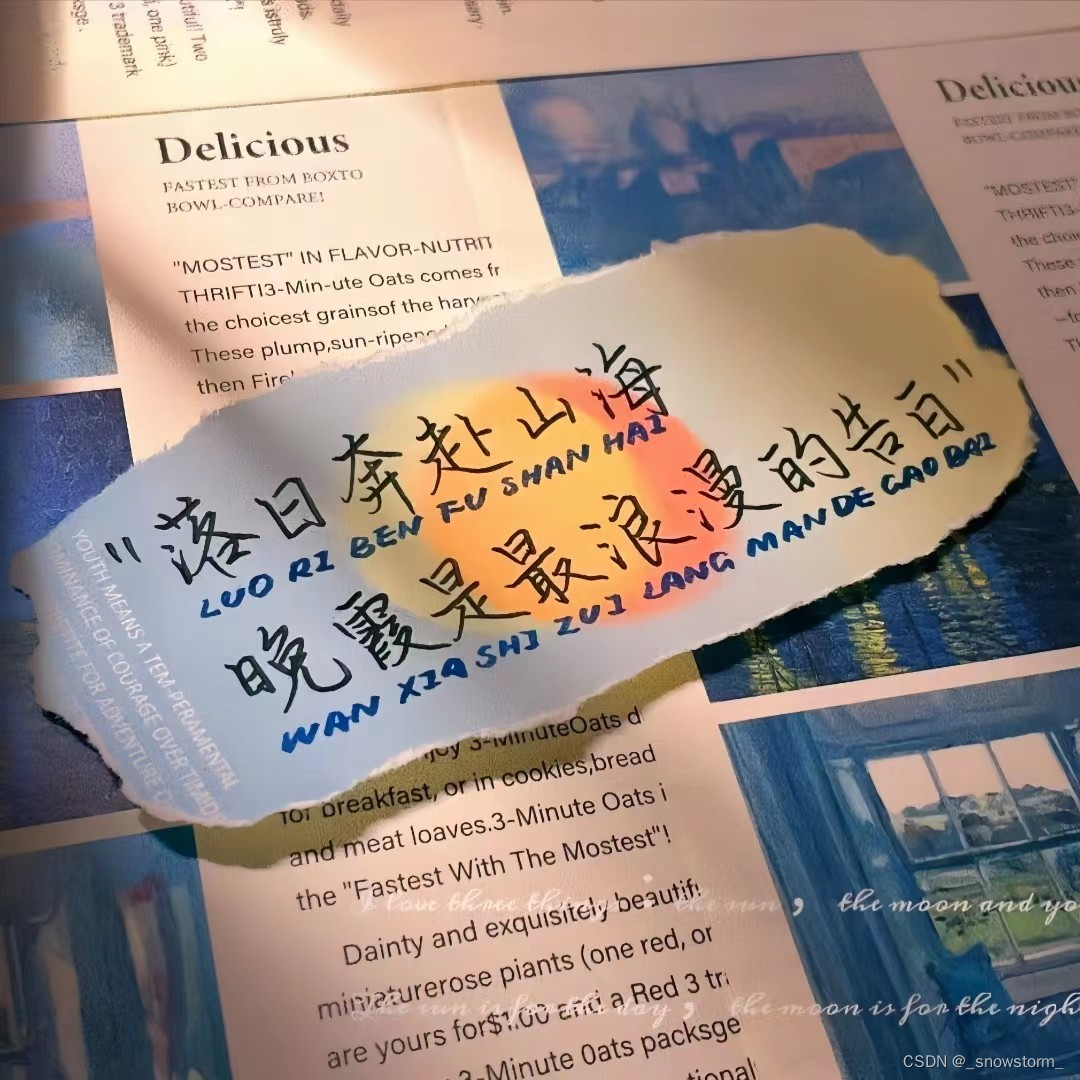 Delicious
FASTEST FROM BOXTO
BOWL-COMPARE!
"MOSTEST" IN FLAVOR-NUTRIT
THRIFTI3-Min-ute Oats comes fr
the choicest grainsof the har
These plump,sun-ripen
then Fire
"落日奔赴山海
LUO RI BEN FU SHAN HAI
晚霞是最浪漫的告白"
WAN XIA SHI ZUI LANG MAN DE GAO BAI
YOUTH MEANS A TEM PERAMENTAL
DMINANCE OF COURAGE OVER TIMID
FOR ADVENTURE
joy 3-MinuteOats d
for breakfast, or in cookies,bread
and meat loaves.3-Minute Oats i
the "Fastest With The Mostest"!
Dainty and exquisitely beautif
miniaturerose piants (one red, or
are yours for$1.00 and a Red 3 tr
3-Minute Oats packsge
tional
I love three things: the sun, the moon and yo
The sun is for the day, the moon is for the nigh
Delicious
"MOSTEST"
THRIFTI3-
the choi
These
then
3 trademark
, one pink)
utiful! Two
CSDN @_snowstorm_